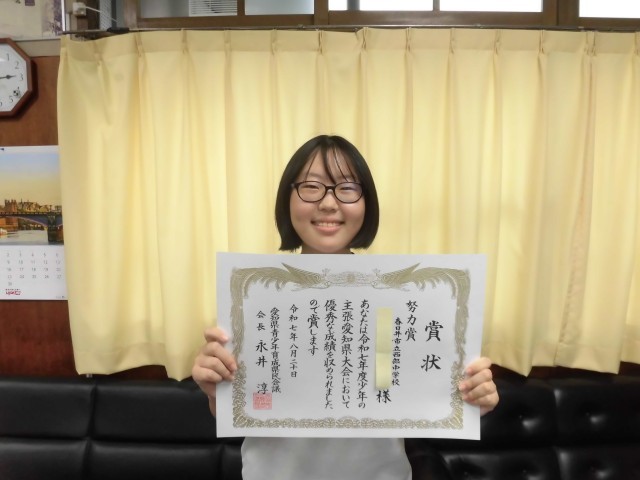 賞状
努力賞
春日井市立西部中学校
様
あなたは令和七年度少年の
主張愛知県大会において
優秀な成績を収められました
ので賞します
令和七年八月二十日
愛知県青少年育成県民会議
会長 永井 淳